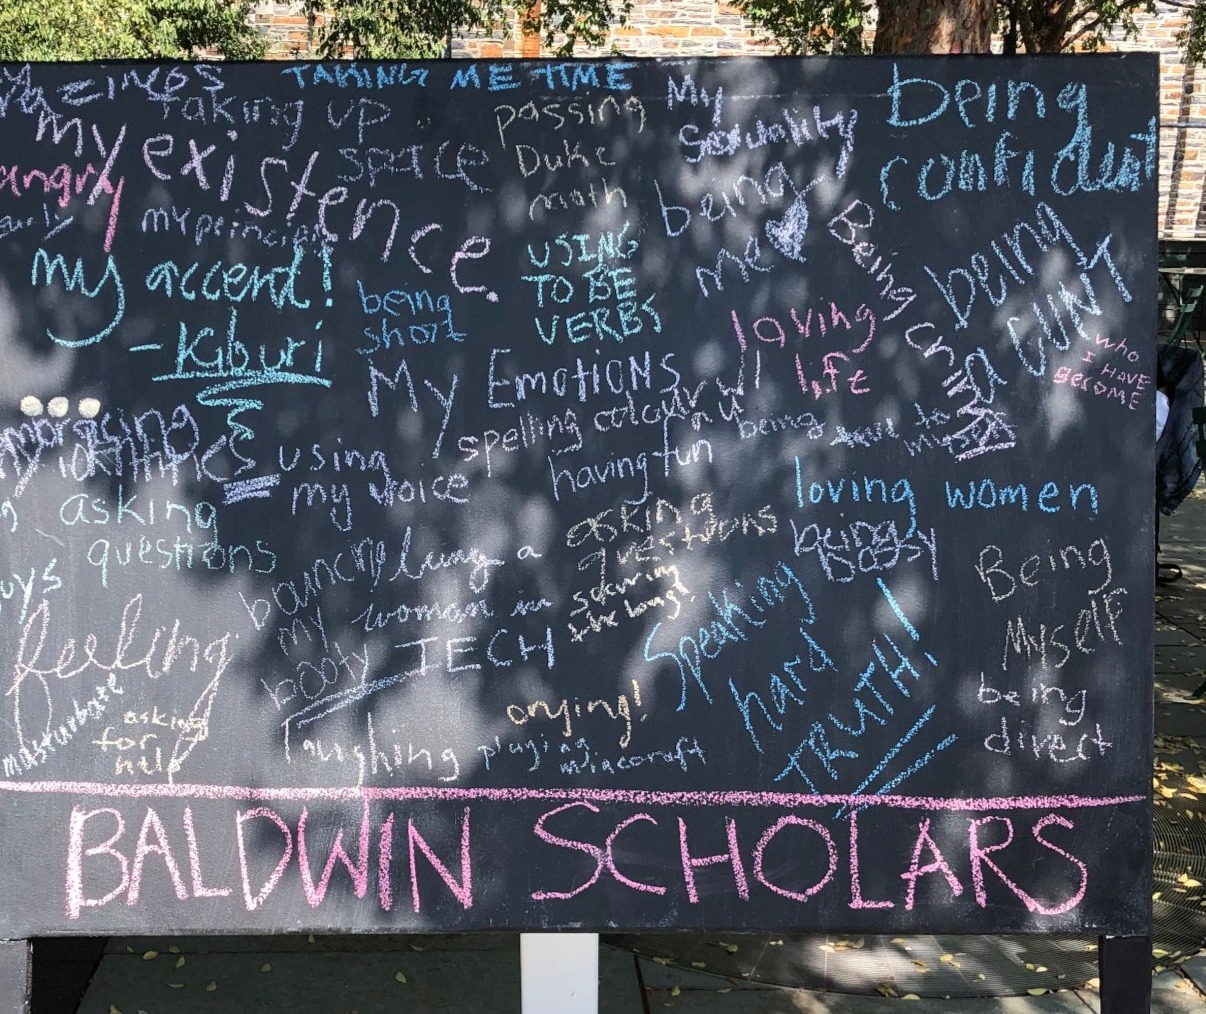 TAKING ME TIME
taking up
space
my existence.
angry
my principles
my accent!
- Kiburi
passing
Duke
math
My
Sexuality
being
me
being
confident
being
short
USING
TO BE
VERBS
Being
being
a CUNT
loving
life
who
I HAVE
BECOME
My Emotions
spelling colour w/
a u
using
my voice
having fun
being
loving women
asking
questions
bouncing
my
booty
being a
woman in
TECH
asking
questions
being
bossy
Being
Myself
Speaking
hard
TRUTH!
feeling
masturbate
asking
for
help
Laughing
crying!
playing
minecraft
being
direct
BALDWIN SCHOLARS